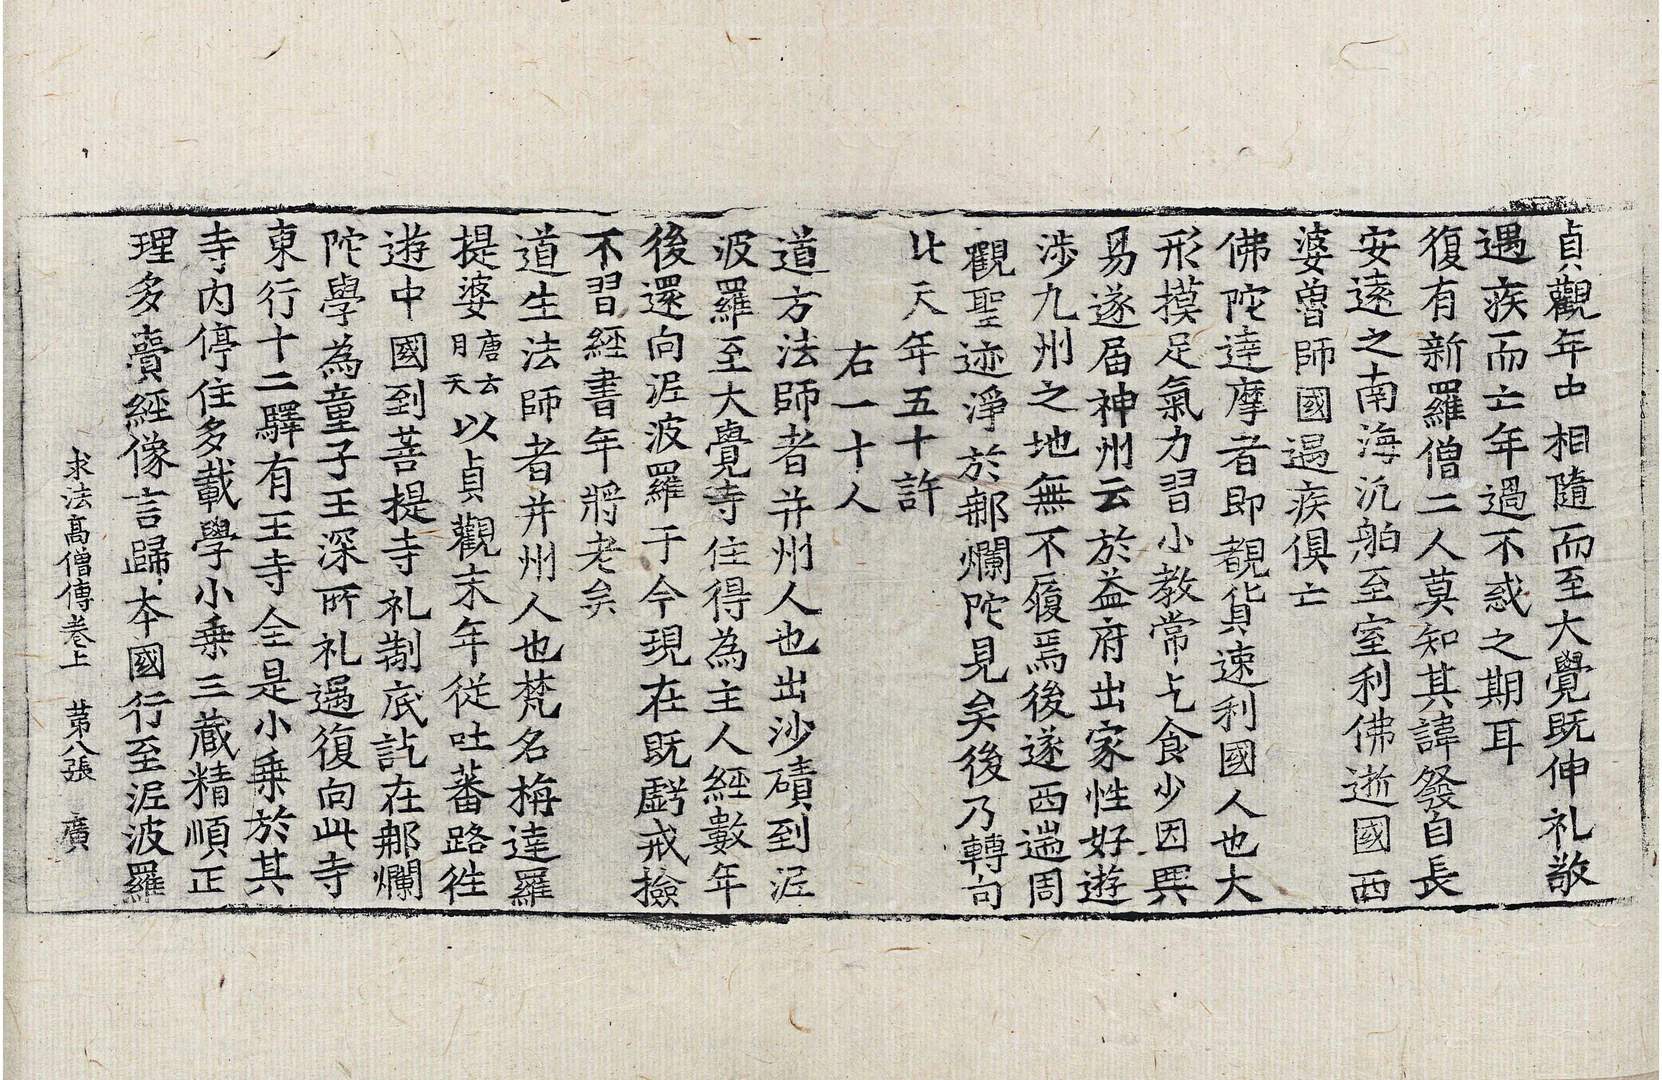 貞觀年中相隨而至大覺既伸礼敬
遇疾而亡年過不惑之期耳
復有新羅僧二人莫知其諱發自長
安遠之南海汎舶至室利佛逝國西
婆魯師國遇疾俱亡
佛陀達摩者即覩貨速利國人也大
形摸足氣力習小教常乞食少因興
易遂届神州云於益府出家性好遊
涉九州之地無不履焉後遂西遄周
觀聖迹淨於𨚗爛陀見矣後乃轉向
北天年五十許
右一十人
道方法師者并州人也出沙磧到泥
波羅至大覺寺住得為主人經數年
後還向泥波羅于今現在既虧戒撿
不習經書年將老矣
道生法師者并州人也梵名栴達羅
提婆唐云月天以貞觀末年從吐蕃路徃
遊中國到菩提寺礼制底訖在𨚗爛
陀學為童子王深所礼遇復向此寺
東行十二驛有王寺全是小乗於其
寺内停住多載學小乗三藏精順正
理多賷經像言歸本國行至泥波羅
求法高僧傳卷上 苐八張 廣